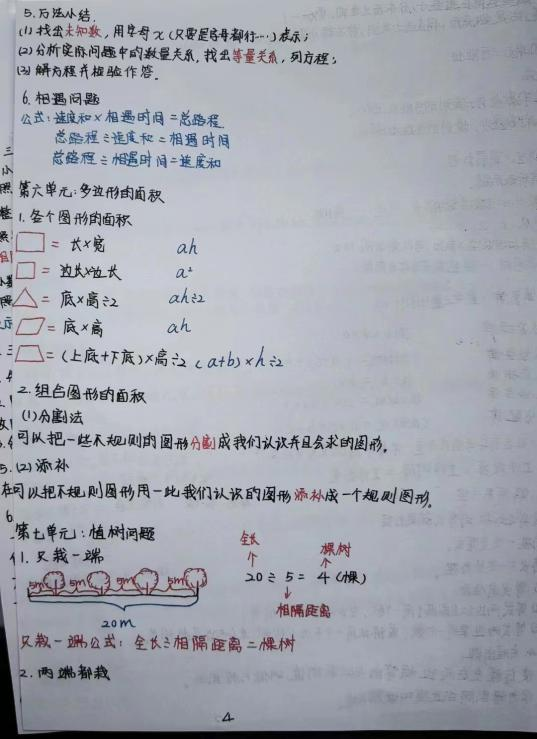 5.方法小结.
(1)找出未知数,用字母x(只要是字母都行…)表示;
(2)分析实际问题中的数量关系,找出等量关系,列方程;
(3)解方程并检验作答.
6.相遇问题
公式:速度和×相遇时间=总路程
总路程÷速度和=相遇时间
总路程÷相遇时间=速度和
第六单元:多边形的面积
1.各个图形的面积
=长×宽 ah
=边长×边长 a²
=底×高÷2 ah÷2
=底×高 ah
=(上底+下底)×高÷2 (a+b)×h÷2
2.组合图形的面积
(1)分割法
可以把一些不规则的图形分割成我们认识并且会求的图形。
(2)添补
可以把不规则图形用一些我们认识的图形添补成一个规则图形。
第七单元:植树问题
1.只栽一端
5m 5m 5m 5m
20m
全长 棵树
20÷5=4(棵)
相隔距离
只栽一端公式:全长÷相隔距离=棵树
2.两端都栽
4